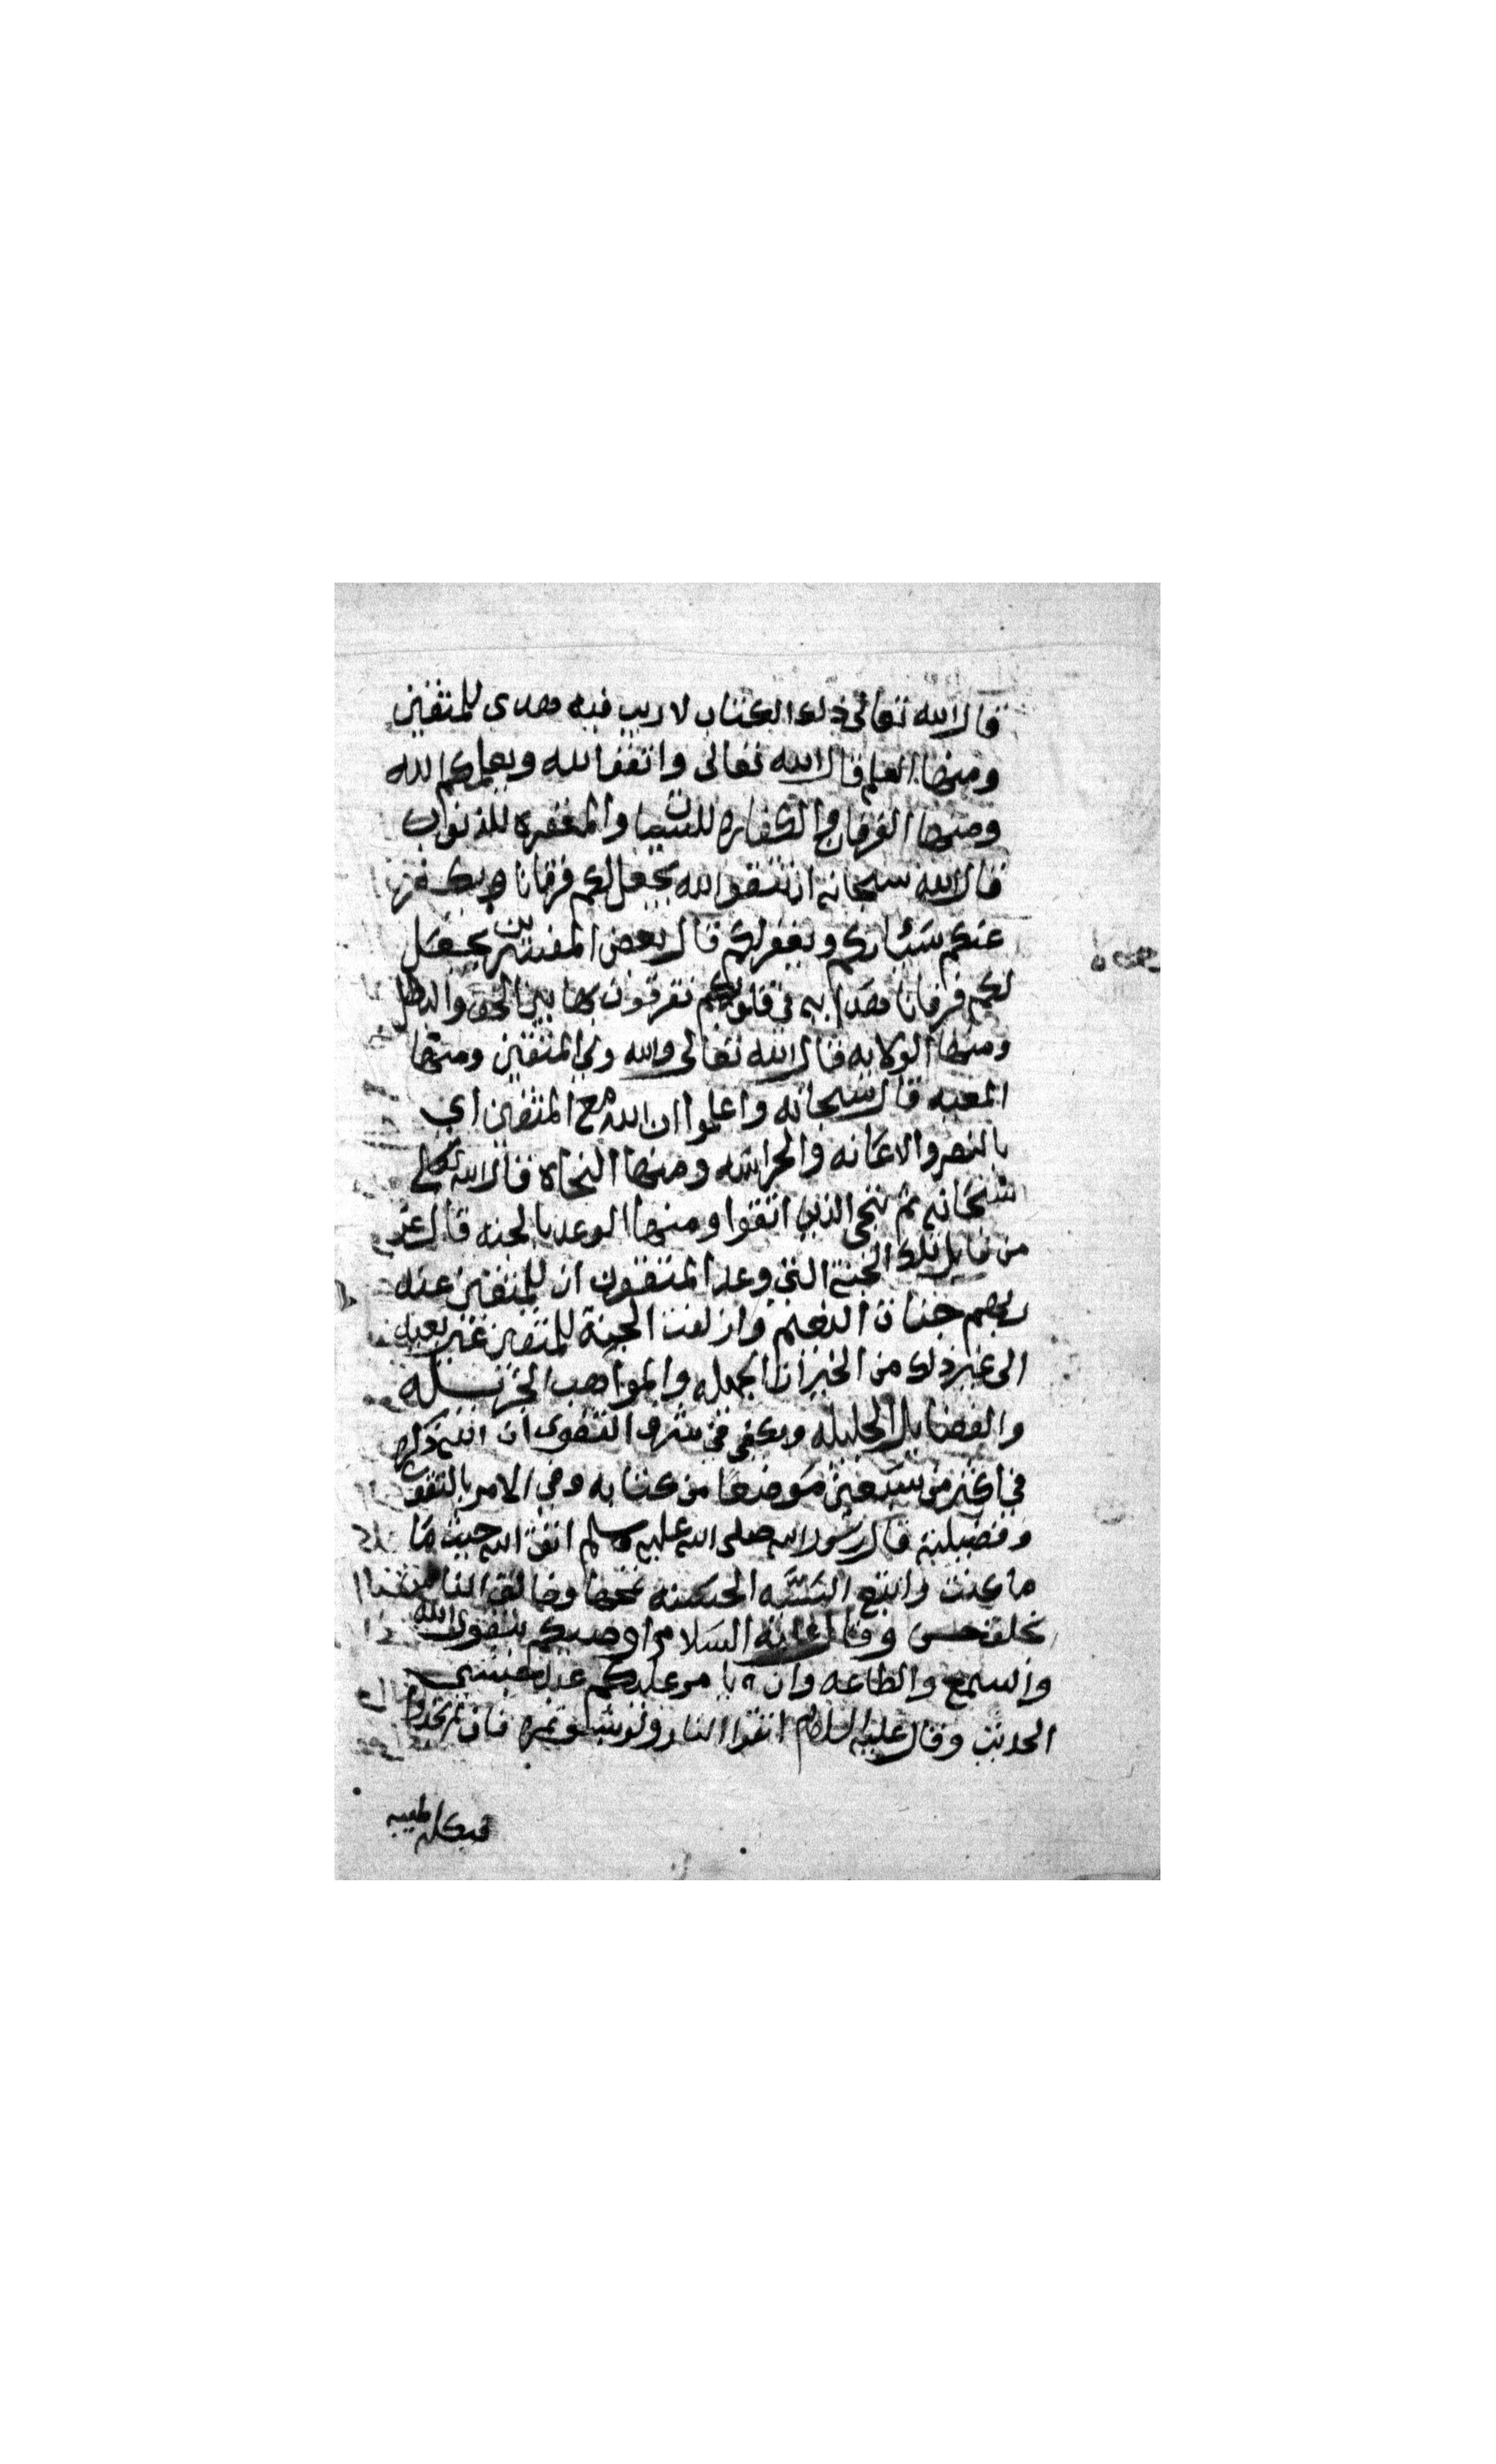 قال الله تعالى ذلك الكتاب لا ريب فيه هدى للمتقين
ومنها العلم قال الله تعالى واتقوا الله ويعلمكم الله
ومنها الفرقان والكفاره للسيئات والمغفرة للذنوب
قال الله سبحانه ان تتقوا الله يجعل لكم فرقانا ويكفر
عنكم سيئاتكم ويغفر لكم قال بعض المفسرين يجعل
لكم فرقانا هدايه في قلوبكم تفرقون بها بين الحق والباطل
ومنها الولايه قال الله تعالى والله ولي المتقين ومنها
المعيه قال سبحانه واعلموا ان الله مع المتقين اي
بالنصر والاعانه والحراسه ومنها النجاه قال الله تعالى
سبحانه ثم ننجي الذين اتقوا ومنها الوعد بالجنه قال عز
من قايل تلك الجنة التي وعد المتقون ان للمتقين عند
ربهم جنات النعيم وازلفت الجنة للمتقين غير بعيد
الى غير ذلك من الخيرات الجميله والمواهب الجزيله
والفضايل الجليله ويكفي في شرف التقوى ان الله ذكرها
في اكثر من سبعين موضعا من كتابه وفي الامر بالتقوى
وفضيلته قال رسول الله صلى الله عليه وسلم اتق الله حيث ما
ما كنت واتبع السيئه الحسنه تمحها وخالق الناس
بخلق حسن وقال عليه السلام اوصيكم بتقوى الله
والسمع والطاعه وان تامر عليكم عبد حبشي
الحديث وقال عليه السلام اتقوا النار ولو بشق تمره فان لم تجدوا
فبكلمه طيبه